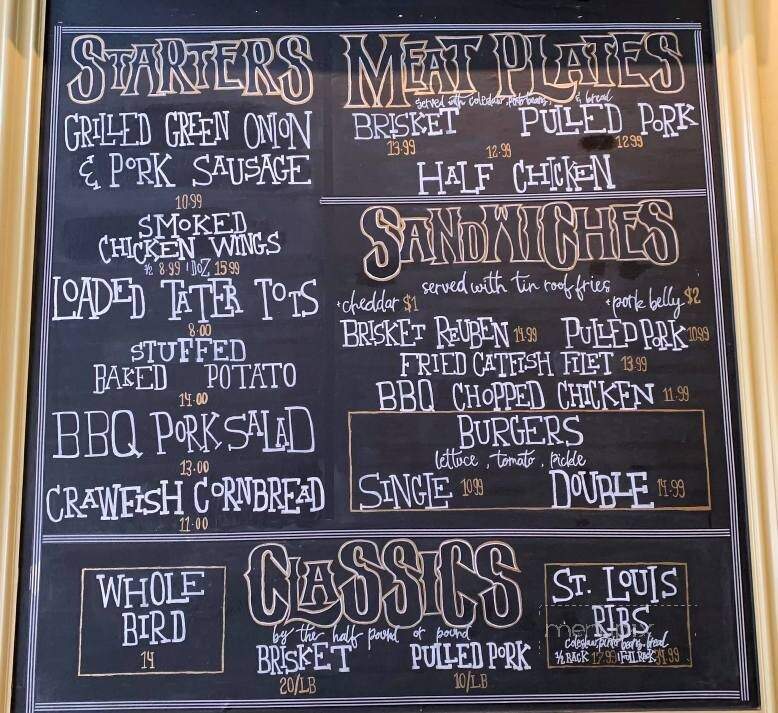 STARTERS
GRILLED GREEN ONION
& PORK SAUSAGE
10.99
SMOKED
CHICKEN WINGS
½ 8.99 1 DOZ 15.99
LOADED TATER TOTS
8.00
STUFFED
BAKED POTATO
14.00
BBQ PORK SALAD
13.00
CRAWFISH CORNBREAD
11.00
MEAT PLATES
served with coleslaw, pinto beans, & bread
BRISKET PULLED PORK
13.99 12.99 12.99
HALF CHICKEN
SANDWICHES
served with tin roof fries
+cheddar $1 +pork belly $2
BRISKET REUBEN 14.99 PULLED PORK 10.99
FRIED CATFISH FILET 13.99
BBQ CHOPPED CHICKEN 11.99
BURGERS
lettuce, tomato, pickle
SINGLE 10.99 DOUBLE 14.99
CLASSICS
by the half pound or pound
BRISKET PULLED PORK
20/LB 10/LB
WHOLE
BIRD
14
ST. LOUIS
RIBS
coleslaw, pinto beans, bread
½ RACK 17.99 FULL RACK